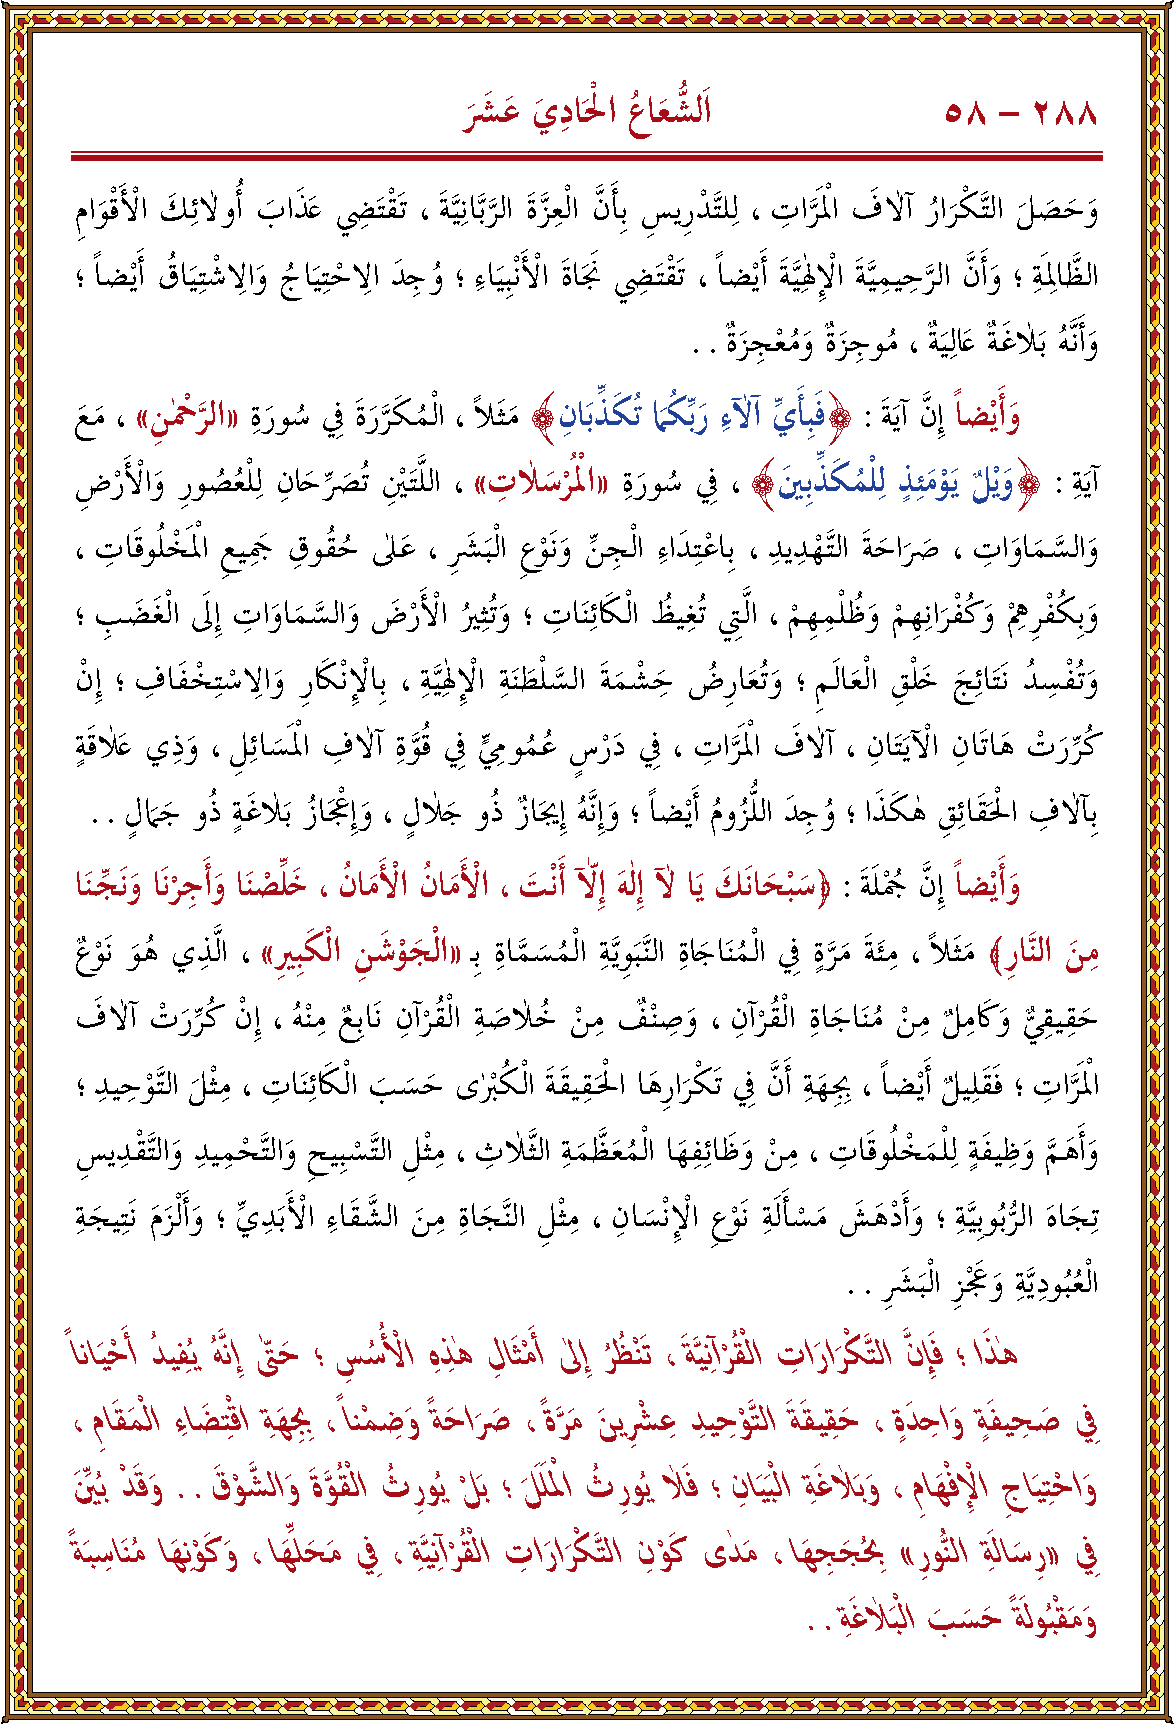 ٢٨٨ – ٥٨ اَلشُّعَاعُ الْحَادِيَ عَشَرَ
وَحَصَلَ التَّكْرَارُ آلاٰفَ الْمَرَّاتِ ، لِلتَّدْرِيسِ بِأَنَّ الْعِزَّةَ الرَّبَّانِيَّةَ ، تَقْتَضِي عَذَابَ أُولاٰئِكَ الْأَقْوَامِ
الظَّالِمَةِ ؛ وَأَنَّ الرَّحِيمِيَّةَ الْإِلٰهِيَّةَ أَيْضاً ، تَقْتَضِي نَجَاةَ الْأَنْبِيَاءِ ؛ وُجِدَ الِاحْتِيَاجُ وَالِاشْتِيَاقُ أَيْضاً ؛
وَأَنَّهُ بَلاٰغَةٌ عَالِيَةٌ ، مُوجِزَةٌ وَمُعْجِزَةٌ . .
وَأَيْضاً إِنَّ آيَةَ : ﴿فَبِأَيِّ آلَآءِ رَبِّكُمَا تُكَذِّبَانِ﴾ مَثَلاً ، الْمُكَرَّرَةَ فِي سُورَةِ «الرَّحْمٰنِ» ، مَعَ
آيَةِ : ﴿وَيْلٌ يَوْمَئِذٍ لِلْمُكَذِّبِينَ﴾ ، فِي سُورَةِ «الْمُرْسَلاٰتِ» ، اللَّتَيْنِ تُصَرِّحَانِ لِلْعُصُورِ وَالْأَرْضِ
وَالسَّمَاوَاتِ ، صَرَاحَةَ التَّهْدِيدِ ، بِاعْتِدَاءِ الْجِنِّ وَنَوْعِ الْبَشَرِ ، عَلٰى حُقُوقِ جَمِيعِ الْمَخْلُوقَاتِ ،
وَبِكُفْرِهِمْ وَكُفْرَانِهِمْ وَظُلْمِهِمْ ، الَّتِي تُغِيظُ الْكَائِنَاتِ ؛ وَتُثِيرُ الْأَرْضَ وَالسَّمَاوَاتِ إِلَى الْغَضَبِ ؛
وَتُفْسِدُ نَتَائِجَ خَلْقِ الْعَالَمِ ؛ وَتُعَارِضُ حِشْمَةَ السَّلْطَنَةِ الْإِلٰهِيَّةِ ، بِالْإِنْكَارِ وَالِاسْتِخْفَافِ ؛ إِنْ
كُرِّرَتْ هَاتَانِ الْآيَتَانِ ، آلاٰفَ الْمَرَّاتِ ، فِي دَرْسٍ عُمُومِيٍّ فِي قُوَّةِ آلاٰفِ الْمَسَائِلِ ، وَذِي عَلاٰقَةٍ
بِآلاٰفِ الْحَقَائِقِ هٰكَذَا ؛ وُجِدَ اللُّزُومُ أَيْضاً ؛ وَإِنَّهُ إِيجَازٌ ذُو جَلاٰلٍ ، وَإِعْجَازُ بَلاٰغَةٍ ذُو جَمَالٍ . .
وَأَيْضاً إِنَّ جُمْلَةَ : ﴿سُبْحَانَكَ يَا لآَ إِلٰهَ إِلآَّ أَنْتَ ، الْأَمَانُ الْأَمَانُ ، خَلِّصْنَا وَأَجِرْنَا وَنَجِّنَا
مِنَ النَّارِ﴾ مَثَلاً ، مِئَةَ مَرَّةٍ فِي الْمُنَاجَاةِ النَّبَوِيَّةِ الْمُسَمَّاةِ بِـ «الْجَوْشَنِ الْكَبِيرِ» ، الَّذِي هُوَ نَوْعٌ
حَقِيقِيٌّ وَكَامِلٌ مِنْ مُنَاجَاةِ الْقُرْآنِ ، وَصِنْفٌ مِنْ خُلاٰصَةِ الْقُرْآنِ نَابِعٌ مِنْهُ ، إِنْ كُرِّرَتْ آلاٰفَ
الْمَرَّاتِ ؛ فَقَلِيلٌ أَيْضاً ، بِجِهَةِ أَنَّ فِي تَكْرَارِهَا الْحَقِيقَةَ الْكُبْرٰى حَسَبَ الْكَائِنَاتِ ، مِثْلَ التَّوْحِيدِ ؛
وَأَهَمَّ وَظِيفَةٍ لِلْمَخْلُوقَاتِ ، مِنْ وَظَائِفِهَا الْمُعَظَّمَةِ الثَّلاٰثِ ، مِثْلِ التَّسْبِيحِ وَالتَّحْمِيدِ وَالتَّقْدِيسِ
تِجَاهَ الرُّبُوبِيَّةِ ؛ وَأَدْهَشَ مَسْأَلَةِ نَوْعِ الْإِنْسَانِ ، مِثْلِ النَّجَاةِ مِنَ الشَّقَاءِ الْأَبَدِيِّ ؛ وَأَلْزَمَ نَتِيجَةِ
الْعُبُودِيَّةِ وَعَجْزِ الْبَشَرِ . .
هٰذَا ؛ فَإِنَّ التَّكْرَارَاتِ الْقُرْآنِيَّةَ ، تَنْظُرُ إِلٰى أَمْثَالِ هٰذِهِ الْأُسُسِ ؛ حَتّٰى إِنَّهُ يُفِيدُ أَحْيَاناً
فِي صَحِيفَةٍ وَاحِدَةٍ ، حَقِيقَةَ التَّوْحِيدِ عِشْرِينَ مَرَّةً ، صَرَاحَةً وَضِمْناً ، بِجِهَةِ اقْتِضَاءِ الْمَقَامِ ،
وَاحْتِيَاجِ الْإِفْهَامِ ، وَبَلاٰغَةِ الْبَيَانِ ؛ فَلاٰ يُورِثُ الْمَلَلَ ؛ بَلْ يُورِثُ الْقُوَّةَ وَالشَّوْقَ . . وَقَدْ بُيِّنَ
فِي «رِسَالَةِ النُّورِ» بِحُجَجِهَا ، مَدٰى كَوْنِ التَّكْرَارَاتِ الْقُرْآنِيَّةِ ، فِي مَحَلِّهَا ، وَكَوْنِهَا مُنَاسِبَةً
وَمَقْبُولَةً حَسَبَ الْبَلاٰغَةِ . .